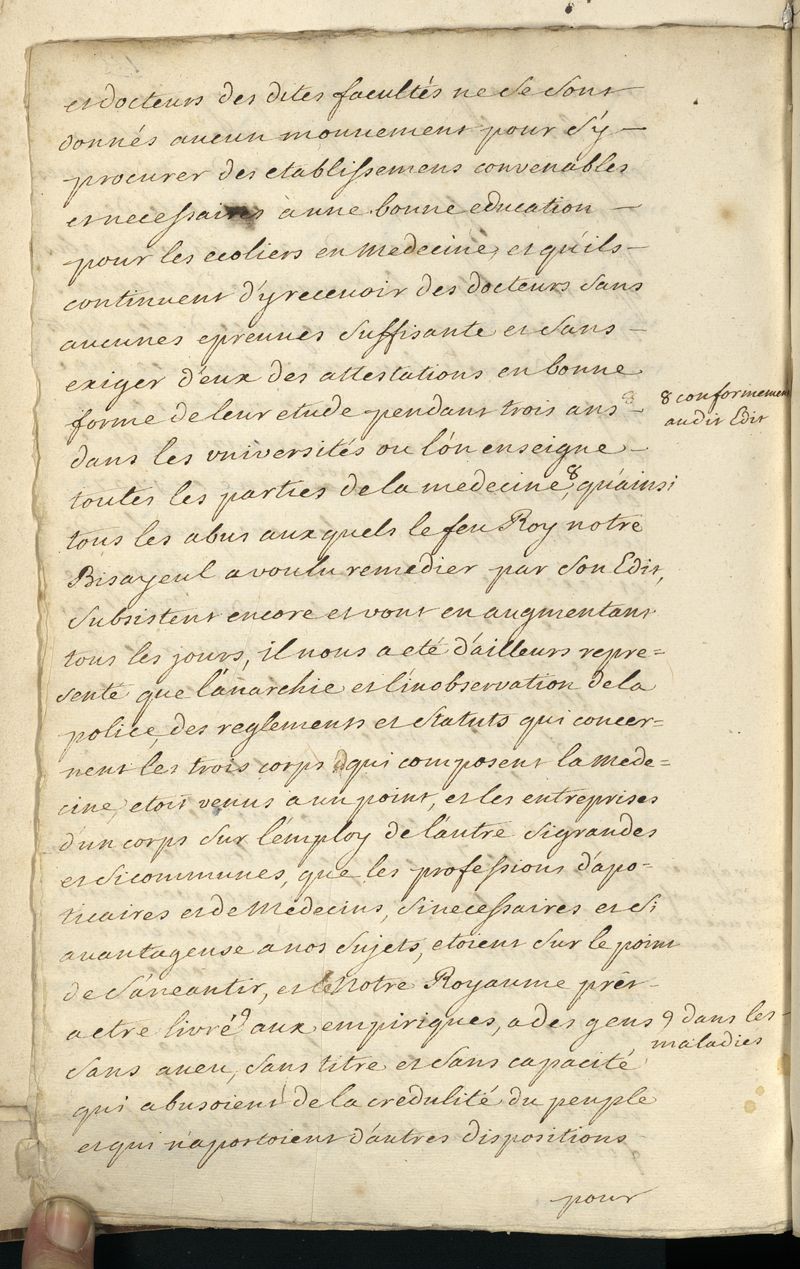 et docteurs des dites facultés ne se sont
donnés aucun mouvement pour s'y
procurer des etablissemens convenables
et necessaires à une bonne education
pour les ecoliers en medecine, et qu'ils
continuent d'y recevoir des docteurs sans
aucunes epreuves suffisante et sans
exiger d'eux des attestations en bonne
forme de leur etude pendant trois ans 8
8 conformement
audit Edit
dans les universités ou l'on enseigne
toutes les parties de la medecine, 8 qu'ainsi
tous les abus auxquels le feu Roy notre
Bisayeul a voulu remedier par son Edit,
subsistent encore et vont en augmentant
tous les jours, il nous a eté d'ailleurs repre=
senté que l'anarchie et l'inobservation de la
police, des reglements et statuts qui concer=
nent les trois corps qui composent la mede=
cine, etoit venus a un point, et les entreprises
d'un corps sur l'employ de l'autre si grandes
et si communes, que les professions d'apo-
ticaires et de Medecins, si necessaires et si
avantageuse a nos sujets, etoient sur le point
de s'aneantir, et Notre Royaume prêt
a etre livré 9 aux empiriques, a des gens
9 dans les
maladies
sans aveu, sans titre et sans capacité
qui abusoient de la credulité du peuple
et qui n'aportoient d'autres dispositions
pour